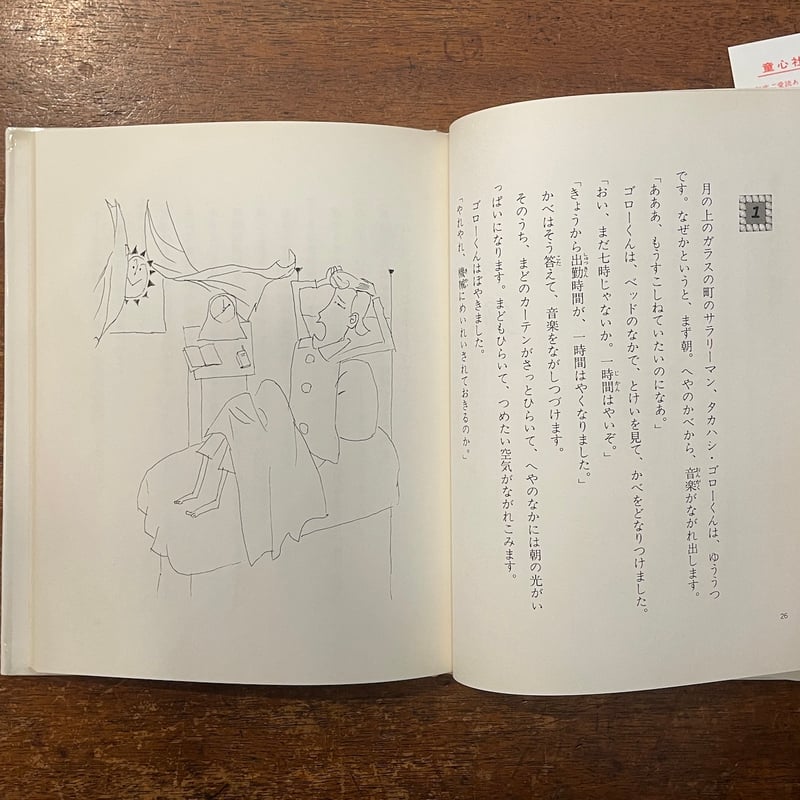 童心社
1
月の上のガラスの町のサラリーマン、タカハシ・ゴローくんは、ゆううつ
です。なぜかというと、まず朝。へやのかべから、音楽がながれ出します。
「あああ、もうすこしねていたいのになあ。」
ゴローくんは、ベッドのなかで、とけいを見て、かべをどなりつけました。
「おい、まだ七時じゃないか。一時間はやいぞ。」
「きょうから出勤時間が、一時間はやくなりました。」
かべはそう答えて、音楽をながしつづけます。
そのうち、まどのカーテンがさっとひらいて、へやのなかには朝の光がい
っぱいになります。まどもひらいて、つめたい空気がながれこみます。
ゴローくんはぼやきました。
「やれやれ、機械にめいれいされておきるのか。」
26